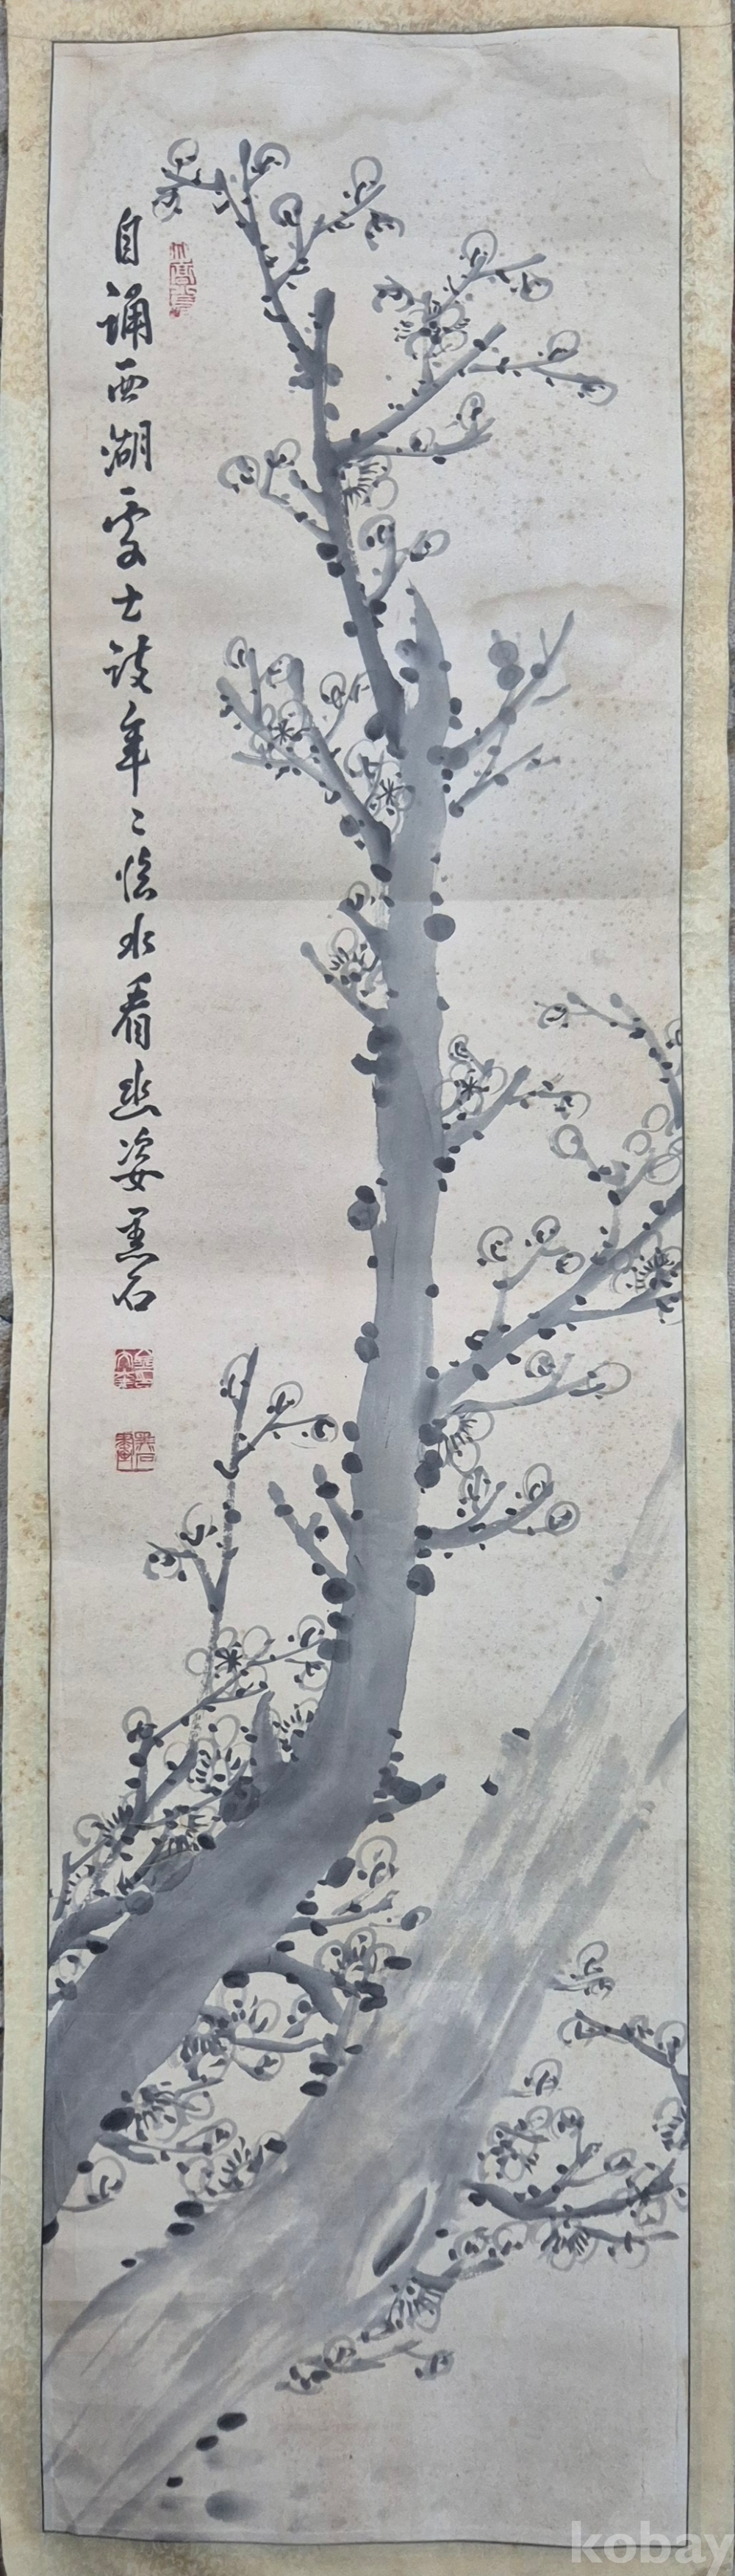 自誦西湖處士詩年〻臨水看幽姿 墨石
kobay